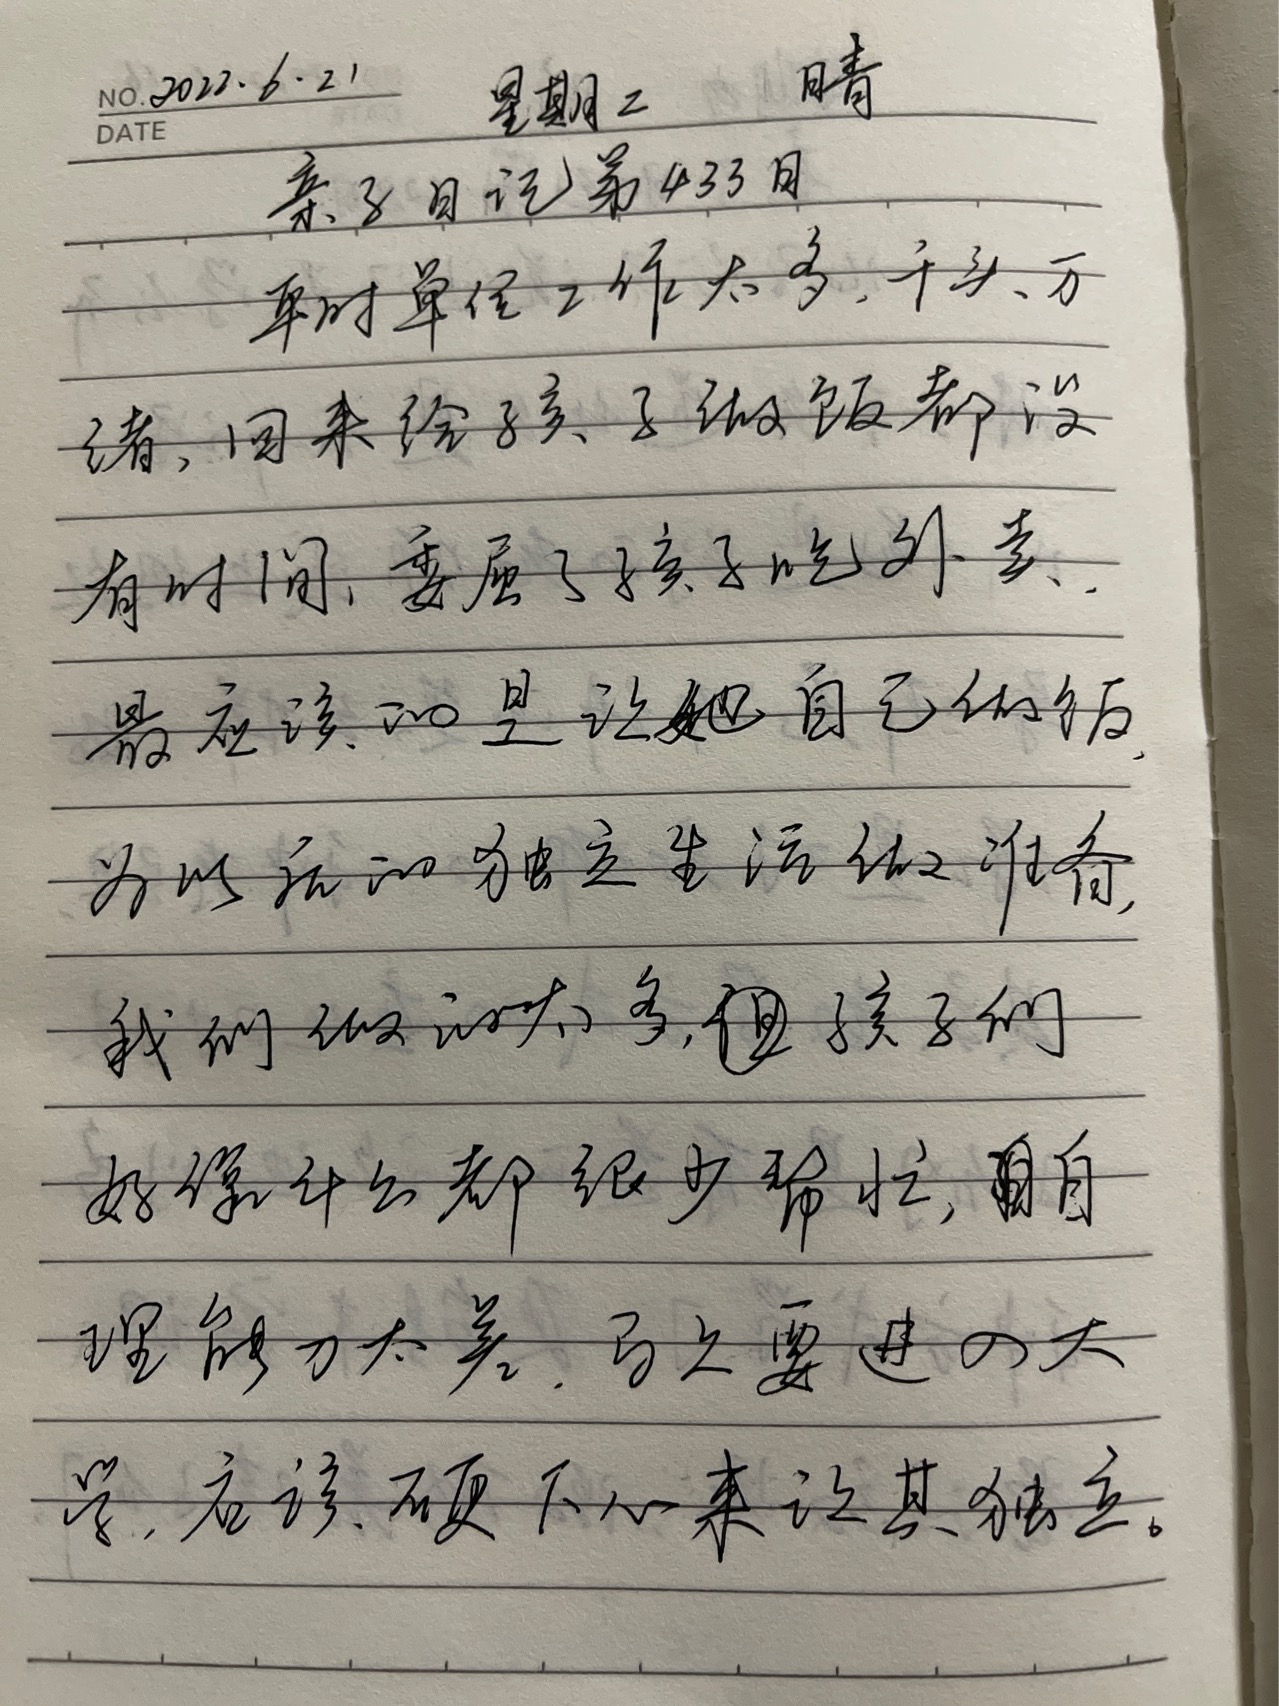 NO. 2022.6.21 星期二 晴
DATE
亲子日记第433日
平时单位工作太多,千头万
绪,回来给孩子做饭都没
有时间,委屈了孩子吃外卖,
最应该的是让她自己做饭,
为以后的独立生活做准备,
我们做的太多,但孩子们
好像什么都很少帮忙,自
理能力太差,马上要进入大
学,应该硬下心来让其独立。